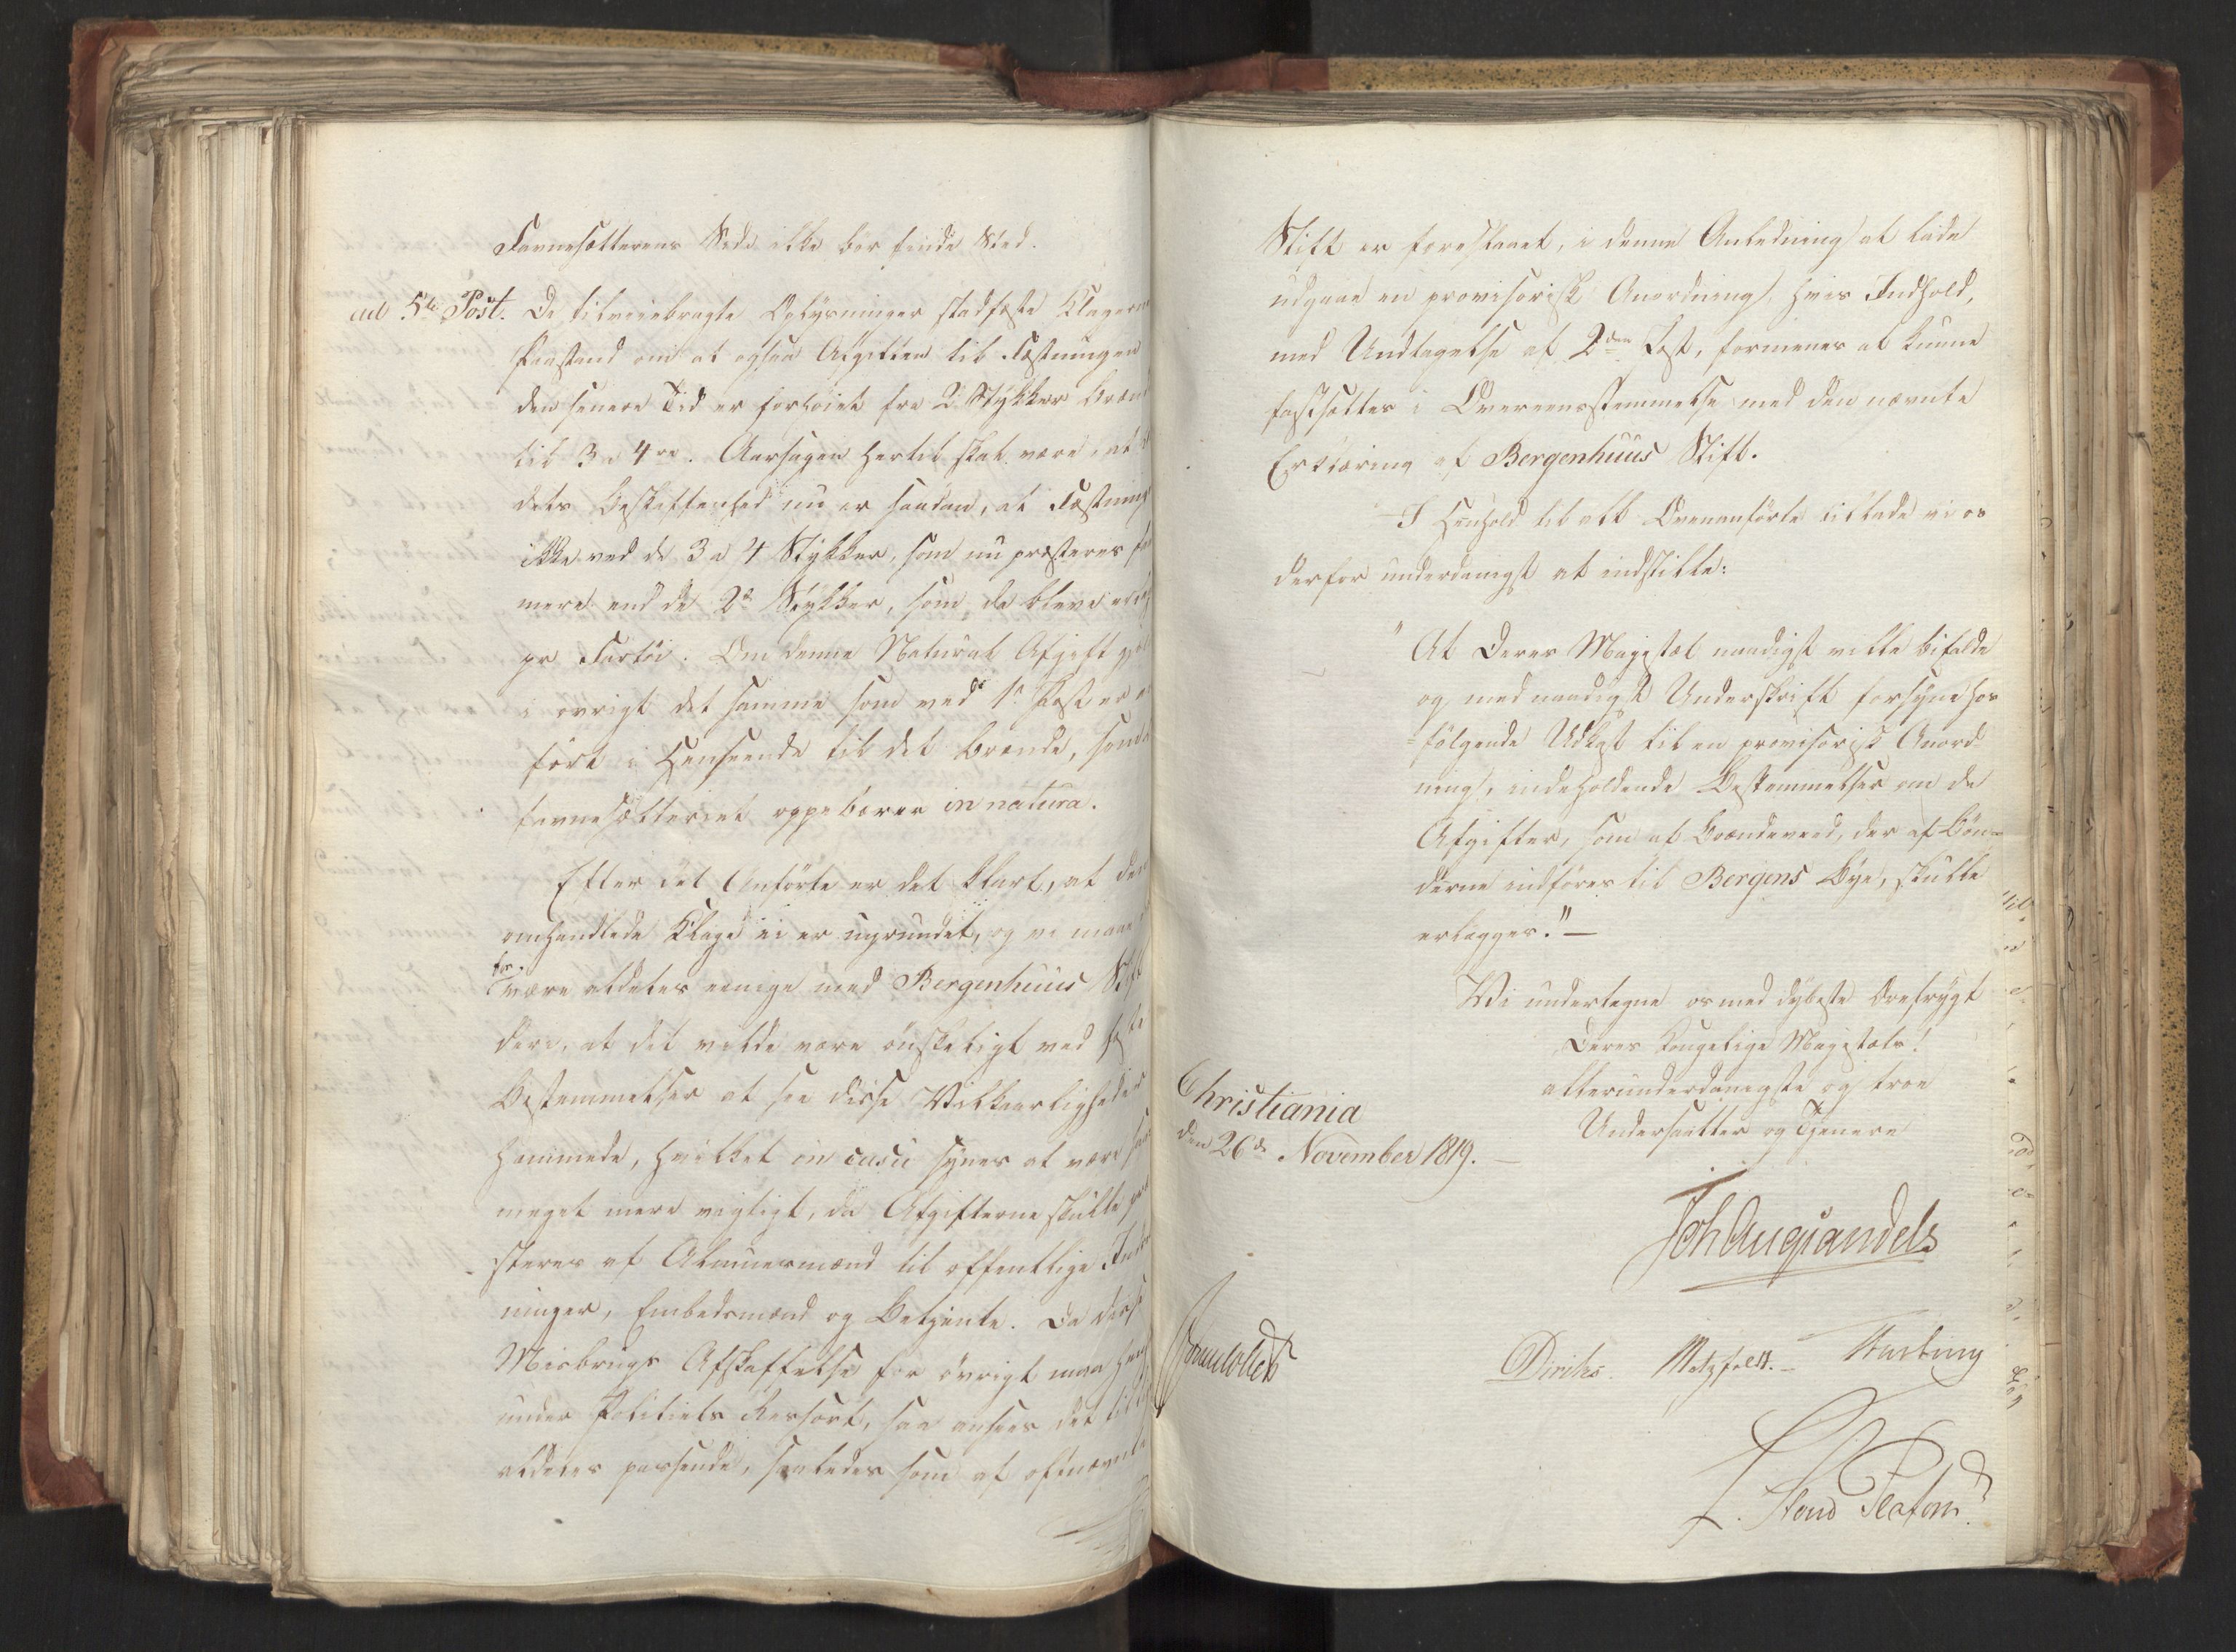 Favnesætterens Side ikke bør finde Sted.
ad 5te Post. De tilveiebragte Oplysninger stadfæste Klagerne
Paastand om at ogsaa Afgiften til Fæstningen
den senere Tid er forhöiet fra 2 Stykker Brænde
til 3 a 4re. Aarsagen hertil skal være, at
dets Beskaffenhed nu er saadan, at Fæstning
ikke ved de 3 a 4 Stykker, som nu præsteres
mere end de 2de Stykker, som da bleve
pr Fartöi. Om denne Natural Afgift
i øvrigt det samme som ved 1ste Post er
fört i Henseende til det Brænde, som
favnesætteriet oppebærer in natura.
Efter det Anförte er det klart, at den
omhandlede Klage ei er ugrundet, og vi maae
for-
være aldeles eenige med Bergenhuus Stift
deri, at det vilde være önskeligt ved faste
Bestemmelser at see disse Vilkaarligheder
hæmmede, hvilket in casu synes at være saa
meget mere vigtigt, da Afgifterne skulle præ
steres af Almuesmænd til offentlige Indret
ninger, Embedsmænd og Betjente. Da disse
Misbrugs Afskaffelse for övrigt maa
under Politiets Ressort, saa ansees det
aldeles passende, saaledes som af oftnævnte
Stift er foreslaaet, i denne Anledning at lade
udgaae en provisorisk Anordning, hvis Indhold,
med Undtagelse af 2den Post, formenes at kunne
fastsættes i Overeensstemmelse med den nævnte
Erklæring af Bergenhuus Stift.
I Henhold til alt Ovenanförte tillade vi os
derfor underdanigst at indstille:
"At Deres Majestæt naadigst ville bifalde
og med naadigst Underskrift forsyne hos
fölgende Udkast til en provisorisk Anord-
ning, indeholdende Bestemmelser om de
Afgifter, som af Brændeveed, der af Bön-
derne indföres til Bergens Bye, skulle
erlægges." —
Vi undertegne os med dybeste Ærefrygt
Deres Kongelige Majestæts!
allerunderdanigste og troe
Undersaatter og Tjenere
Christiania
den 26de November 1819. —
Joh Aug Sandels
Sommerhielm
Diriks. Motzfeldt. — Krebting
L. Stoud Platou